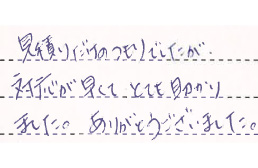 見積りだけのつもりでしたが、
対応が早くて とても助かり
ました。 ありがとうございました。